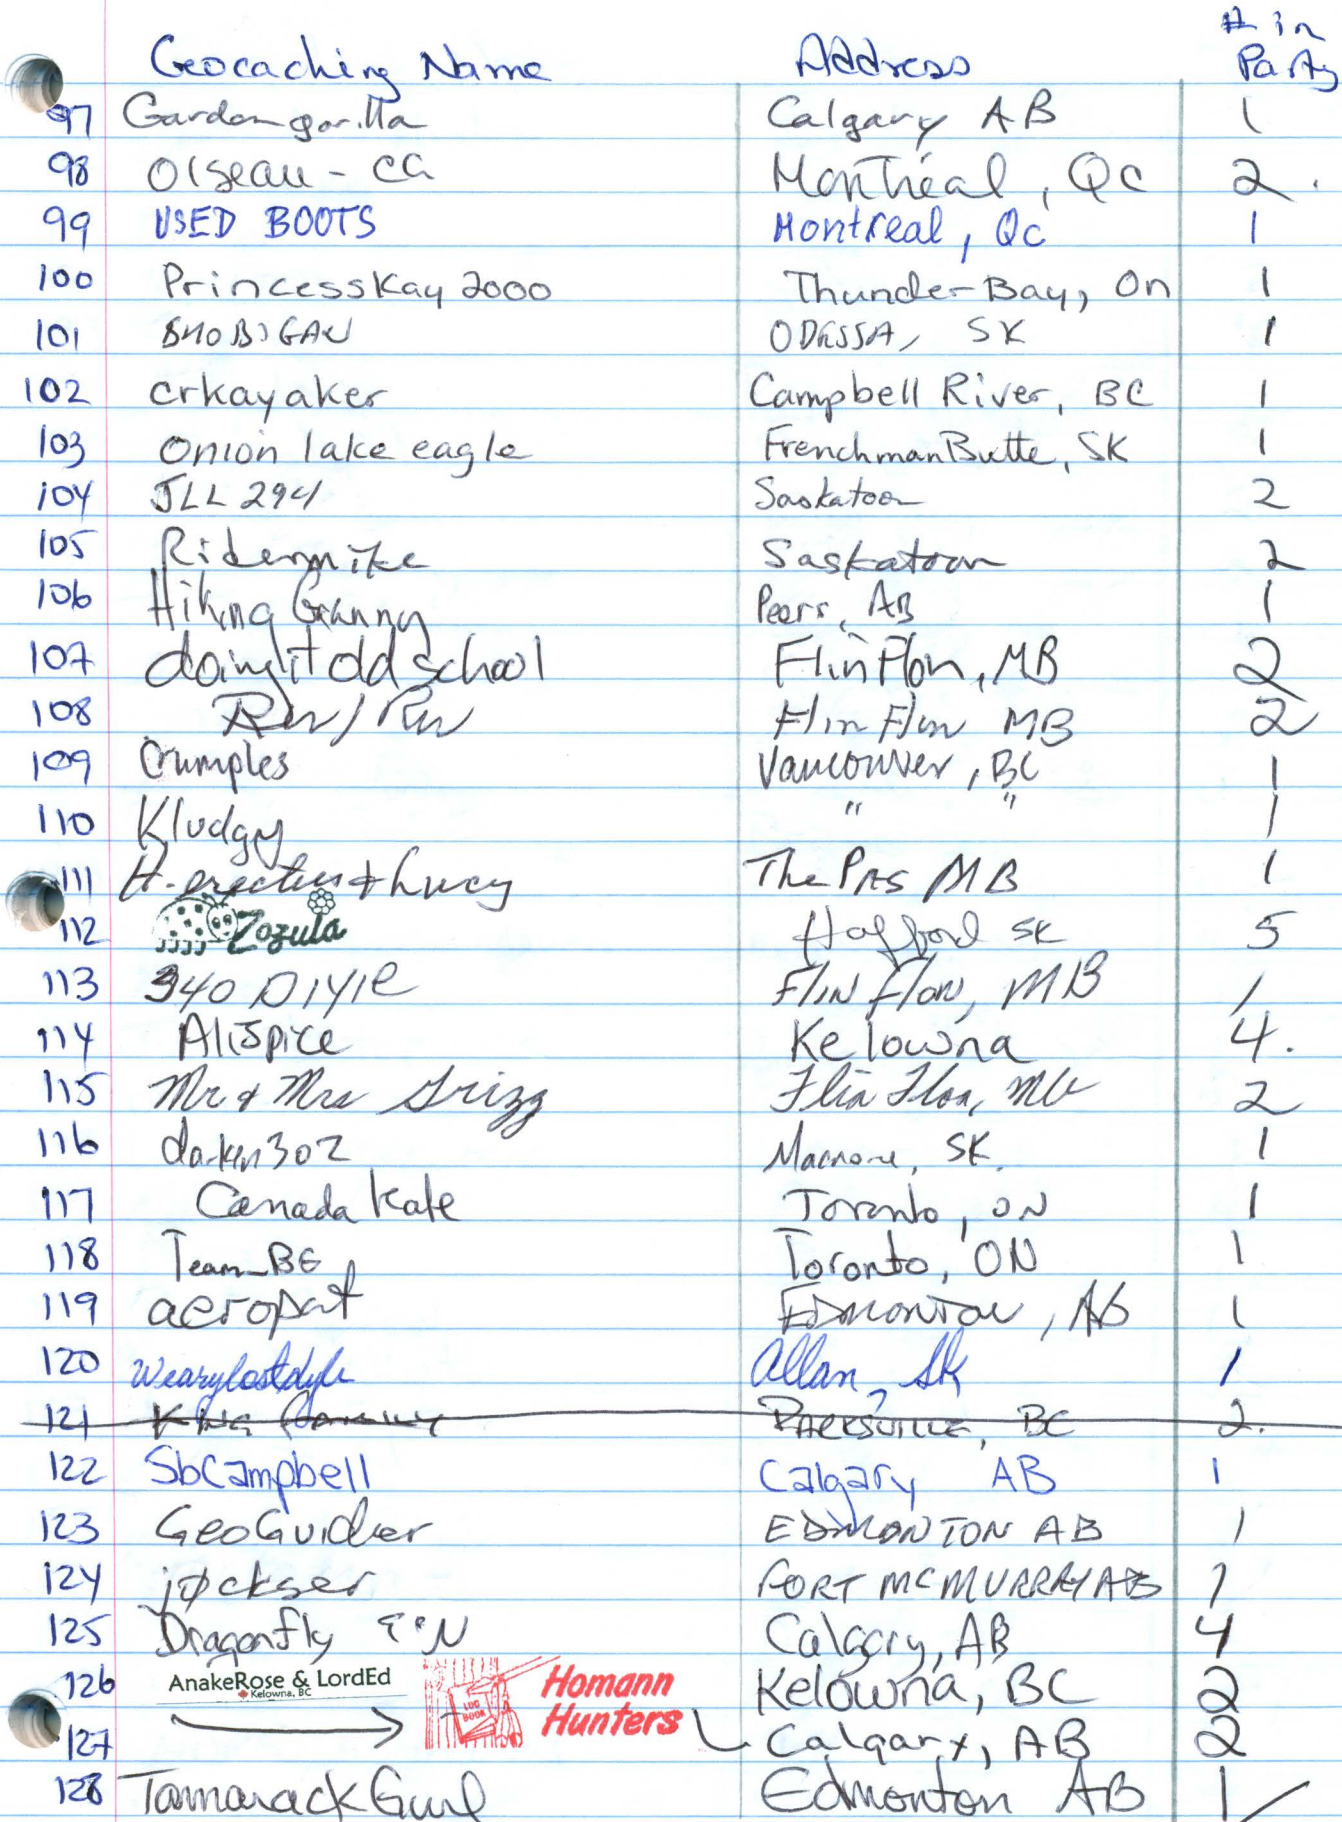 Geocaching Name Address # in Party
97 Gardengorilla Calgary AB 1
98 Oiseau-ca Montréal, Qc 2
99 USED BOOTS Montreal, Qc 1
100 PrincessKay2000 Thunder Bay, On 1
101 ODESSA, SK 1
102 crkayaker Campbell River, BC 1
103 Onion lake eagle Frenchman Butte, SK 1
104 JLL 294 Saskatoon 2
105 Ridermike Saskatoon 2
106 Hiking Granny Peers, AB 1
107 doingitoldschool Flin Flon, MB 2
108 Flin Flon MB 2
109 Crumples Vancouver, BC 1
110 Kludgy " " 1
111 H.erectus & Lucy The PAS MB 1
112 Zozula Hafford SK 5
113 340 Dixie Flin Flon, MB 1
114 Alispice Kelowna 4.
115 Mr & Mrs Grizz Flin Flon, MB 2
116 darken302 SK. 1
117 Canada Kate Toronto, ON 1
118 Team_BG Toronto, ON 1
119 aeropat EDMONTON, AB 1
120 Wearylostdyle Allan, Sk 1
121 King Family PARKSVILLE, BC 2.
122 SbCampbell Calgary AB 1
123 GeoGuider EDMONTON AB 1
124 jøckser FORT MCMURRAY AB 1
125 Dragonfly Calgary, AB 4
126 AnakeRose & LordEd Kelowna, BC Kelowna, BC 2
127 LOG BOOK Homann Hunters Calgary, AB 2
128 TamarackGurl Edmonton AB 1